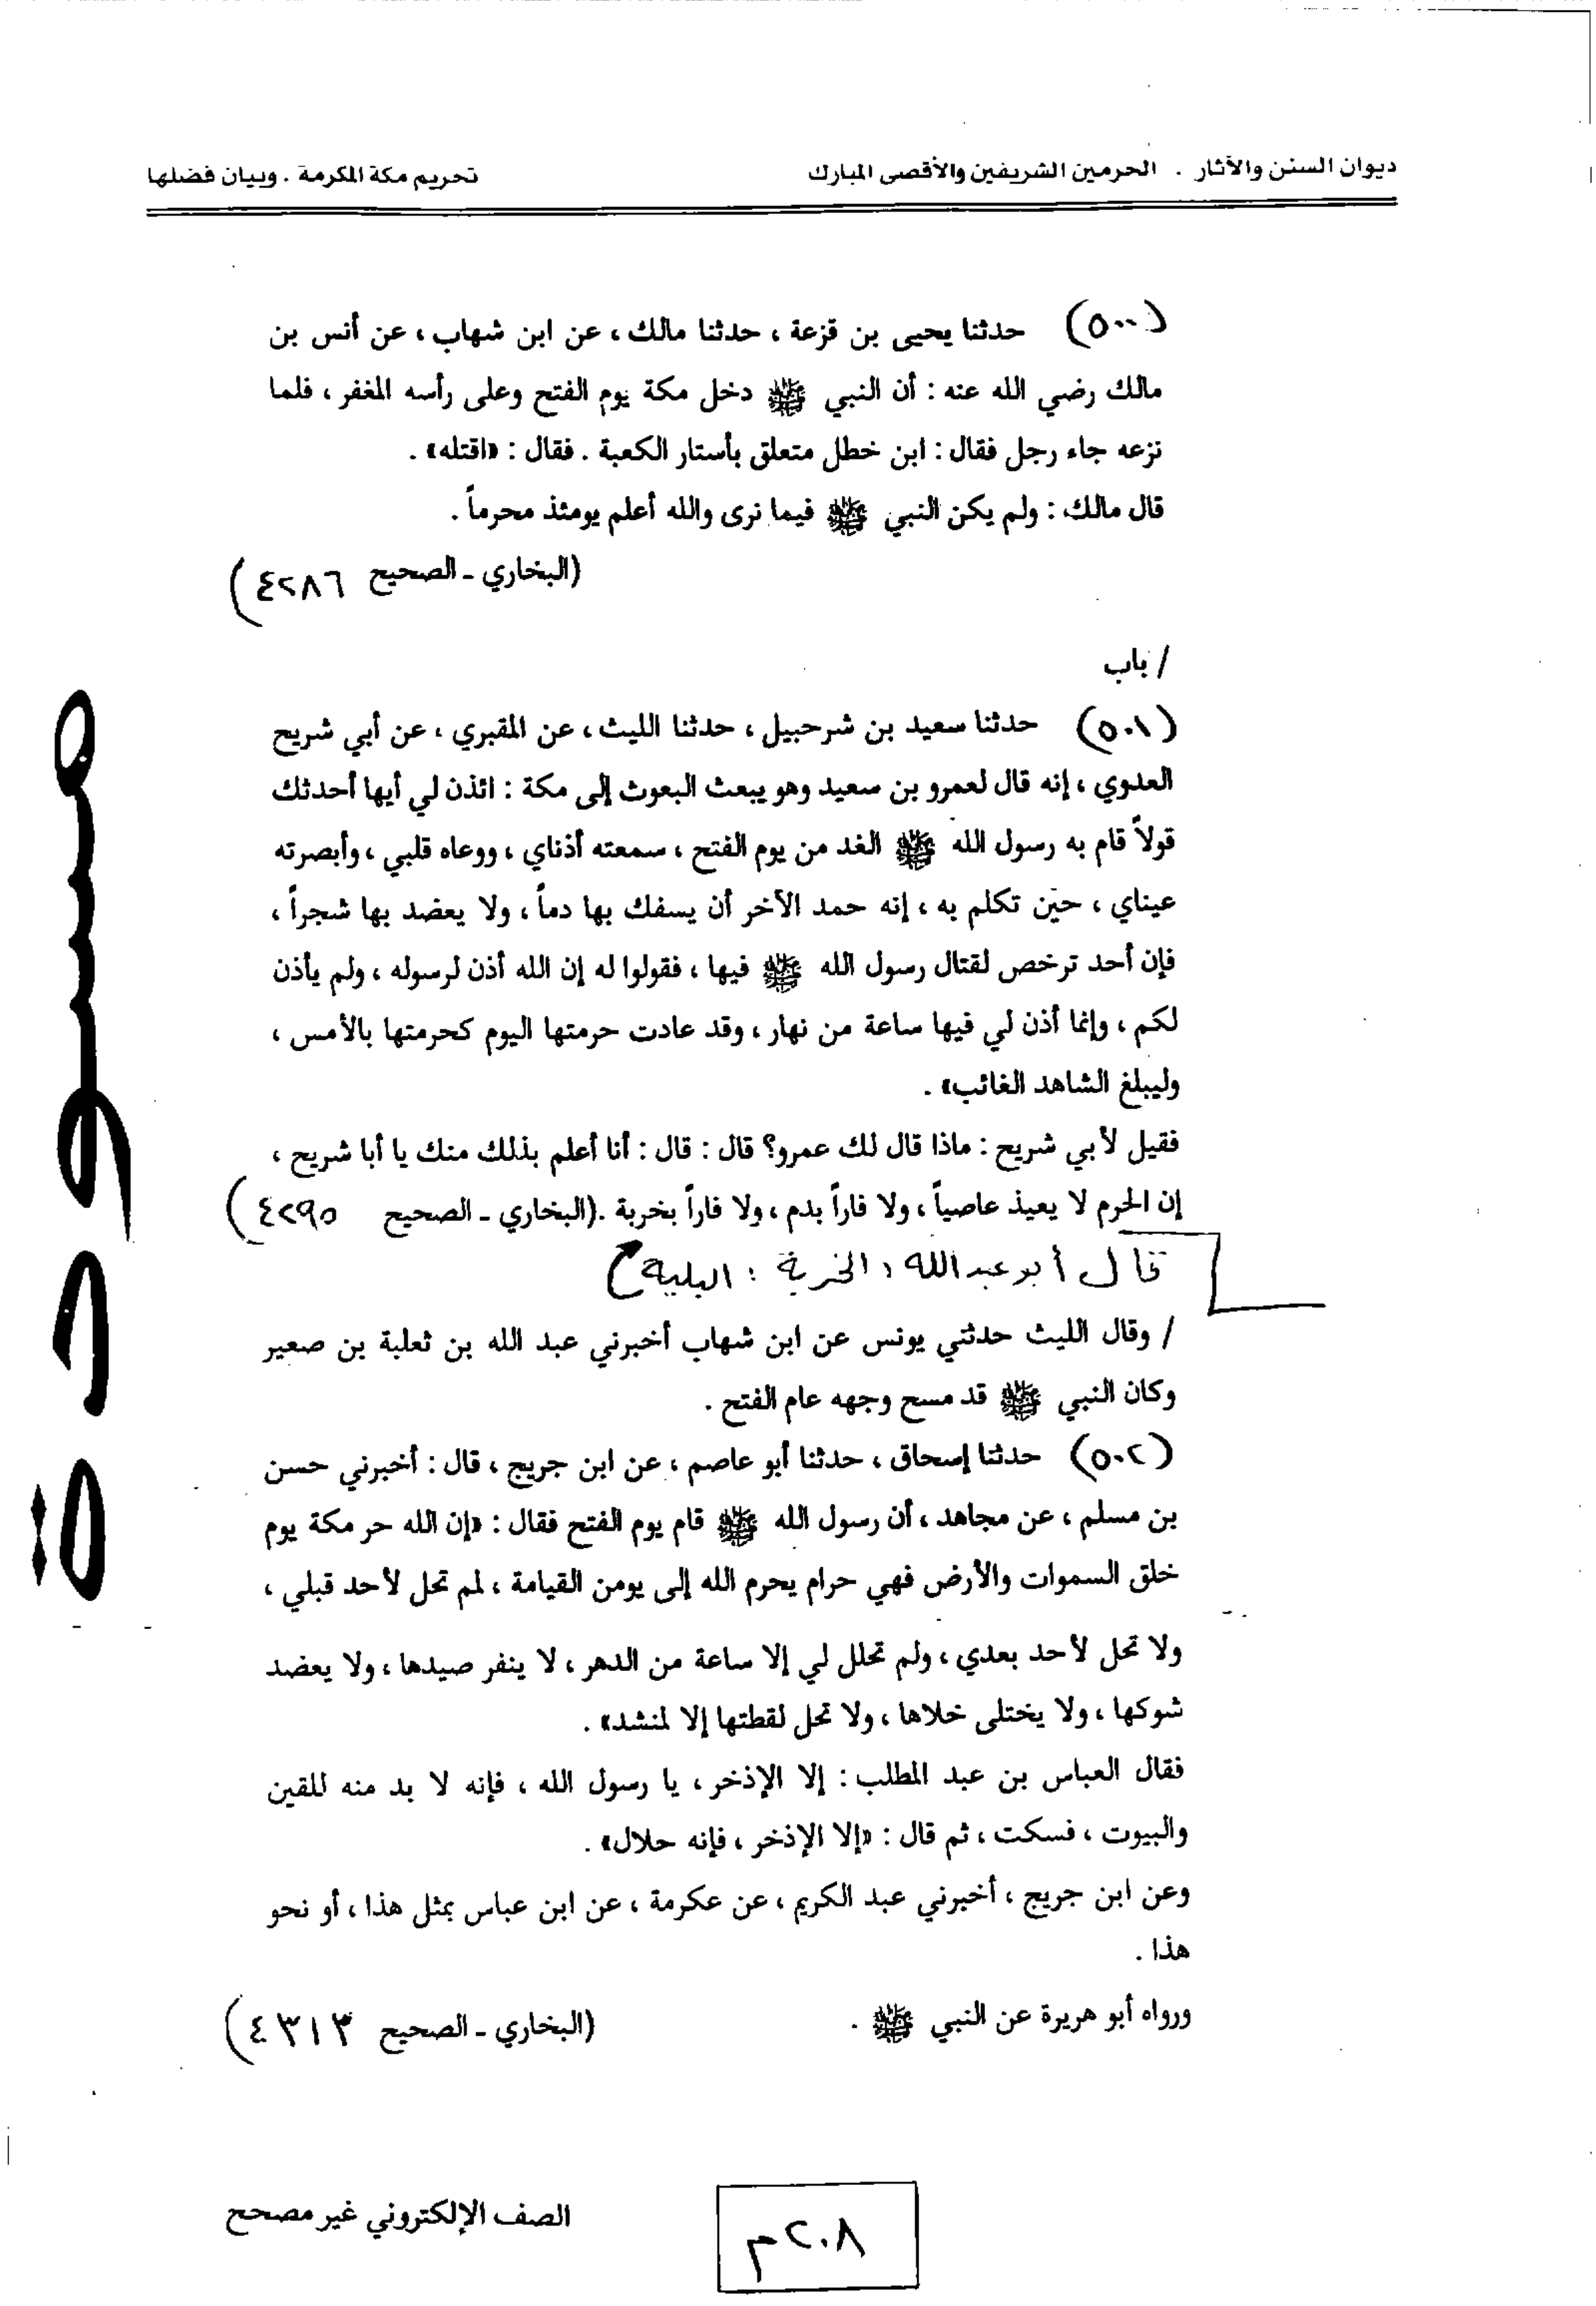 ديوان السنن والآثار . الحرمين الشريفين والأقصى المبارك
تحريم مكة المكرمة . وبيان فضلها
(٥٠٠) حدثنا يحيى بن قزعة ، حدثنا مالك ، عن ابن شهاب ، عن أنس بن
مالك رضي الله عنه : أن النبي ﷺ دخل مكة يوم الفتح وعلى رأسه المغفر ، فلما
نزعه جاء رجل فقال : ابن خطل متعلق بأستار الكعبة . فقال : «اقتله» .
قال مالك : ولم يكن النبي ﷺ فيما نرى والله أعلم يومئذ محرماً .
(البخاري - الصحيح ٤٢٨٦)
/ باب
(٥٠١) حدثنا سعيد بن شرحبيل ، حدثنا الليث ، عن المقبري ، عن أبي شريح
العدوي ، إنه قال لعمرو بن سعيد وهو يبعث البعوث إلى مكة : ائذن لي أيها أحدثك
قولاً قام به رسول الله ﷺ الغد من يوم الفتح ، سمعته أذناي ، ووعاه قلبي ، وأبصرته
عيناي ، حين تكلم به ، إنه حمد الآخر أن يسفك بها دماً ، ولا يعضد بها شجراً ،
فإن أحد ترخص لقتال رسول الله ﷺ فيها ، فقولوا له إن الله أذن لرسوله ، ولم يأذن
لكم ، وإنما أذن لي فيها ساعة من نهار ، وقد عادت حرمتها اليوم كحرمتها بالأمس ،
وليبلغ الشاهد الغائب» .
فقيل لأبي شريح : ماذا قال لك عمرو؟ قال : قال : أنا أعلم بذلك منك يا أبا شريح ،
إن الحرم لا يعيذ عاصياً ، ولا فاراً بدم ، ولا فاراً بخربة .(البخاري - الصحيح ٤٢٩٥)
قال أبو عبدالله : الخربة : البلية
/ وقال الليث حدثني يونس عن ابن شهاب أخبرني عبد الله بن ثعلبة بن صعير
وكان النبي ﷺ قد مسح وجهه عام الفتح .
(٥٠٢) حدثنا إسحاق ، حدثنا أبو عاصم ، عن ابن جريج ، قال : أخبرني حسن
بن مسلم ، عن مجاهد ، أن رسول الله ﷺ قام يوم الفتح فقال : «إن الله حر مكة يوم
خلق السموات والأرض فهي حرام يحرم الله إلى يومن القيامة ، لم تحل لأحد قبلي ،
ولا تحل لأحد بعدي ، ولم تحلل لي إلا ساعة من الدهر ، لا ينفر صيدها ، ولا يعضد
شوكها ، ولا يختلى خلاها ، ولا تحل لقطتها إلا لمنشد» .
فقال العباس بن عبد المطلب : إلا الإذخر ، يا رسول الله ، فإنه لا بد منه للقين
والبيوت ، فسكت ، ثم قال : «إلا الإذخر ، فإنه حلال» .
وعن ابن جريج ، أخبرني عبد الكريم ، عن عكرمة ، عن ابن عباس بمثل هذا ، أو نحو
هذا .
ورواه أبو هريرة عن النبي ﷺ . (البخاري - الصحيح ٤٣١٣)
مسودة
٢٠٨م
الصف الإلكتروني غير مصحح